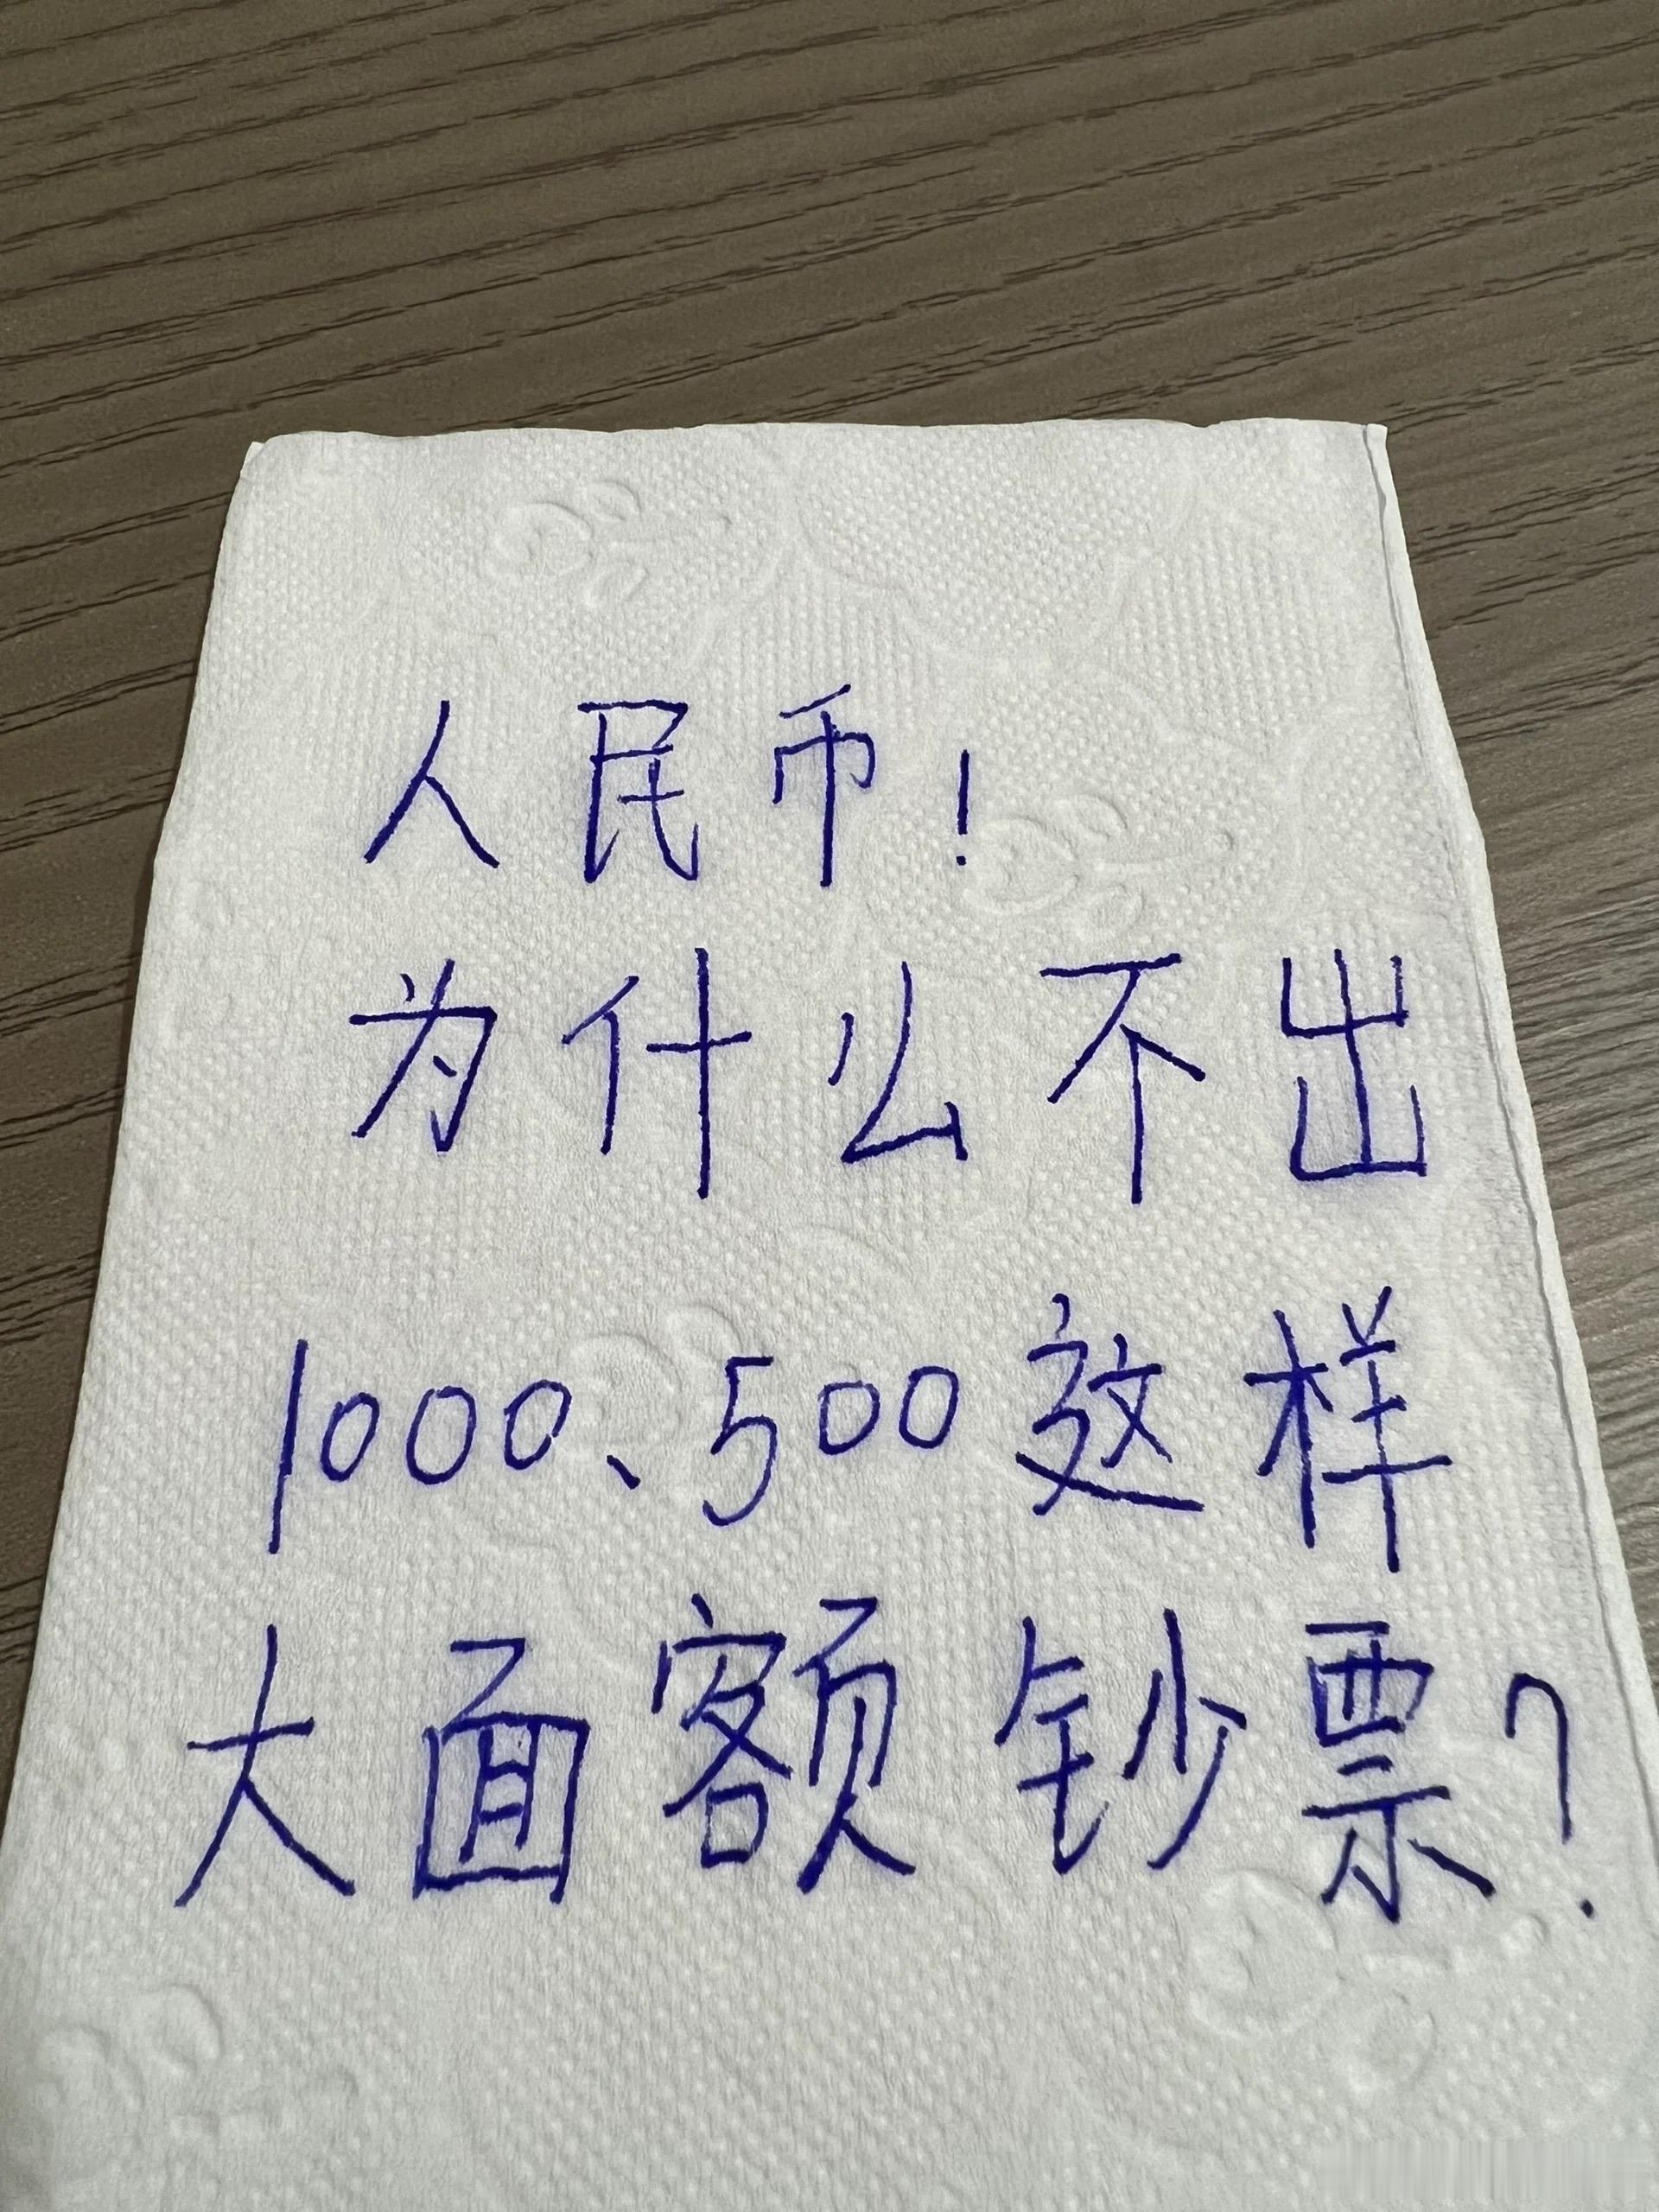 人民币!
为什么不出
1000、500这样
大面额钞票?